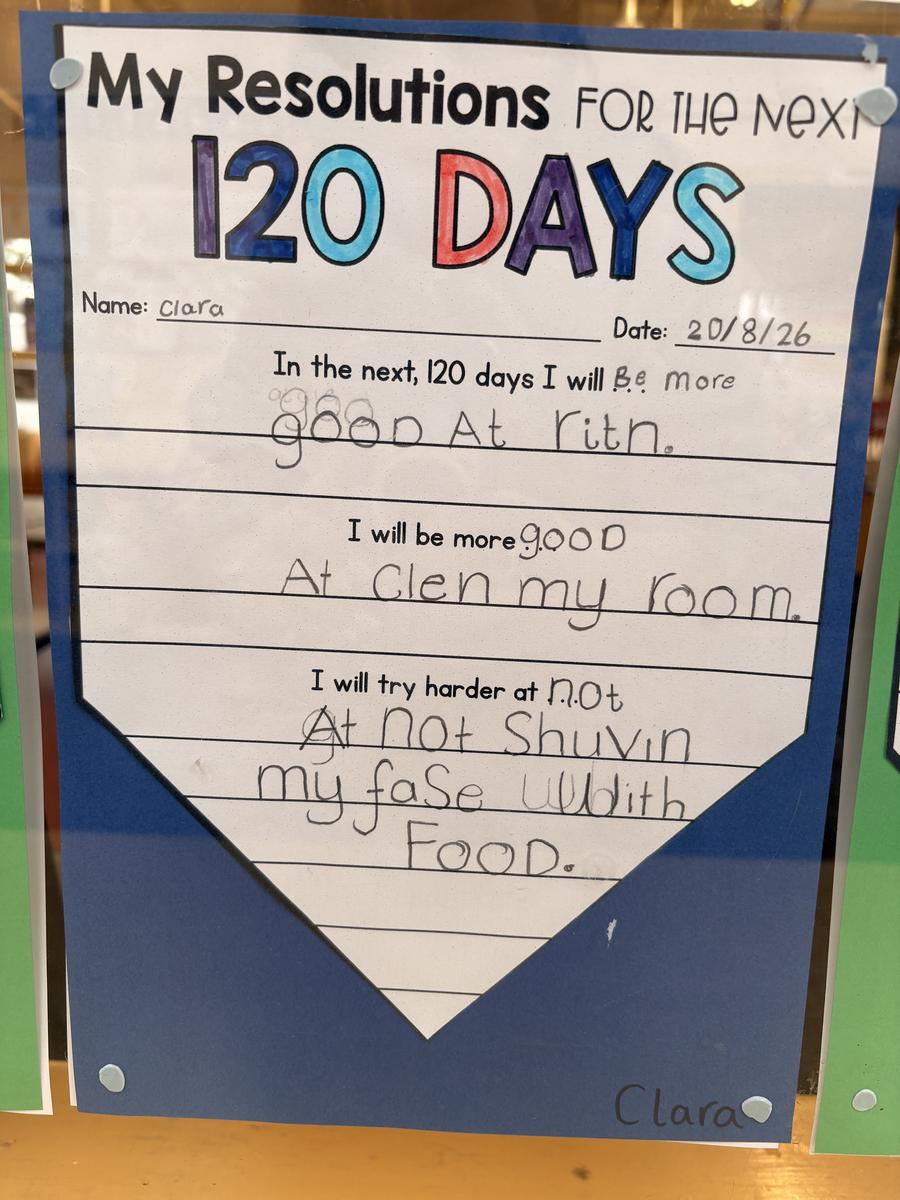 My Resolutions FOR THE NEXT
120 DAYS
Name: Clara Date: 20/8/26
In the next, 120 days I will Be more
gOOD At ritn.
I will be more gOOD
At Clen my room.
I will try harder at not
At not Shuvin
my faSe Wdith
FOOD.
Clara